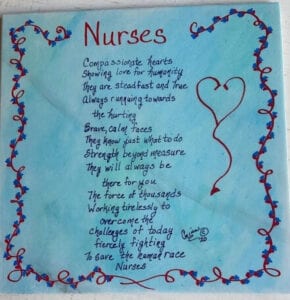 Nurses
Compassionate hearts
Showing love for humanity
They are steadfast and true
Always running towards
the hurting
Brave, calm faces
They know just what to do
Strength beyond measure
They will always be
there for you
The force of thousands
Working tirelessly to
overcome the
challenges of today
fiercely fighting
To save the human race
Nurses